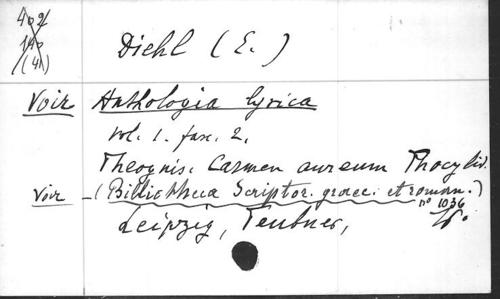 402
140
(41)
Diehl (E.)
Voir Anthologia lyrica
vol. 1. fasc. 2.
Theognis. Carmen aureum Phocylid.
Voir (Bibliotheca Scriptor. graec. et roman.)
n° 1036
Leipzig, Teubner,